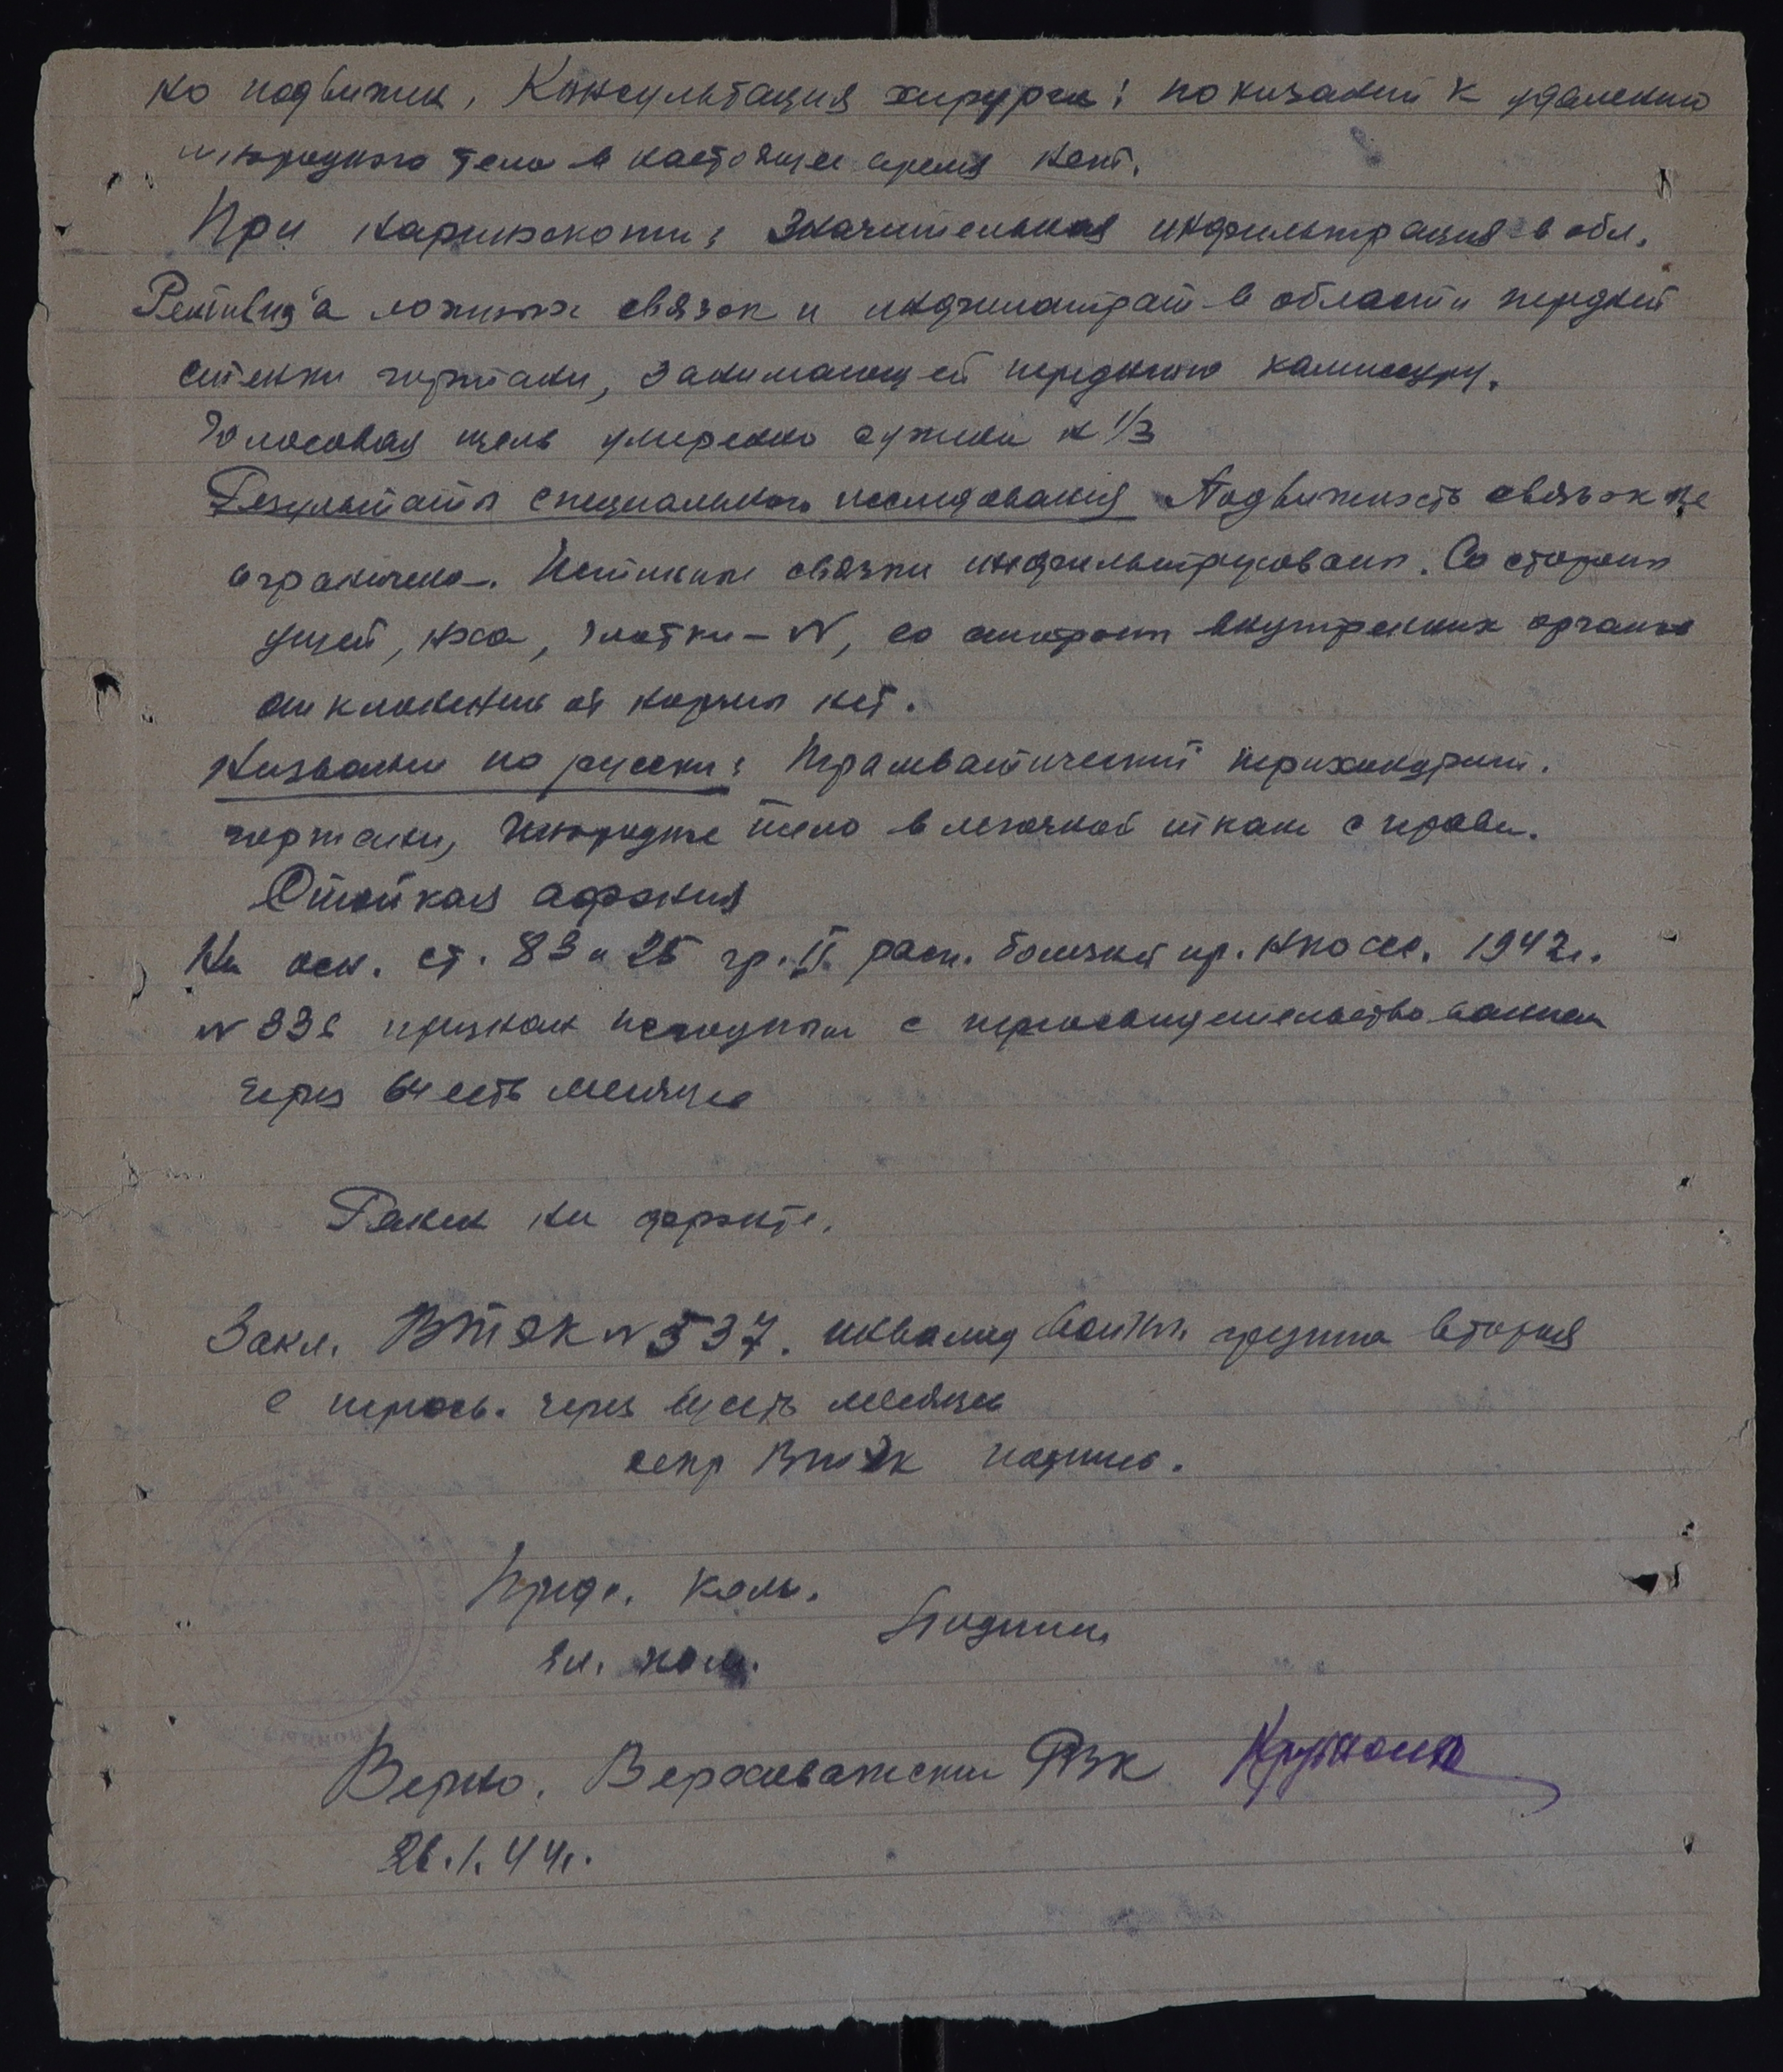 но подвижен, Консультация хирурга: показаний к удалению
инородного тела в настоящее время нет.
При ларингоскопии: Значительная инфильтрация в обл.
ложных связок и инфильтрат в области передней
стенки гортани, занимающей переднюю комиссуру.
Голосовая щель умеренно сужена на 1/3
Результаты специального исследования Подвижность связок не
ограничена. Истинные связки инфильтрированы. Со стороны
ушей, носа, глотки – N, со стороны внутренних органов
отклонений от нормы нет.
Название по русски: Травматический перихондрит.
гортани, Инородное тело в легочной ткани справа.
Стойкая афония
На осн. ст. 83 и 25 гр. II расп. болезней пр. НКО ССС. 1942 г.
N 336 признан негодным с переосвидетельствованием
через шесть месяцев
Ранен на фронте.
Закл. ВТЭК N 537. инвалид войны. группа вторая
с переосв. через шесть месяцев
секр ВТЭК подпись.
Предс. ком.
Подписи
чл. ком.
Верно. Верховажский РВК
26.1.44 г.